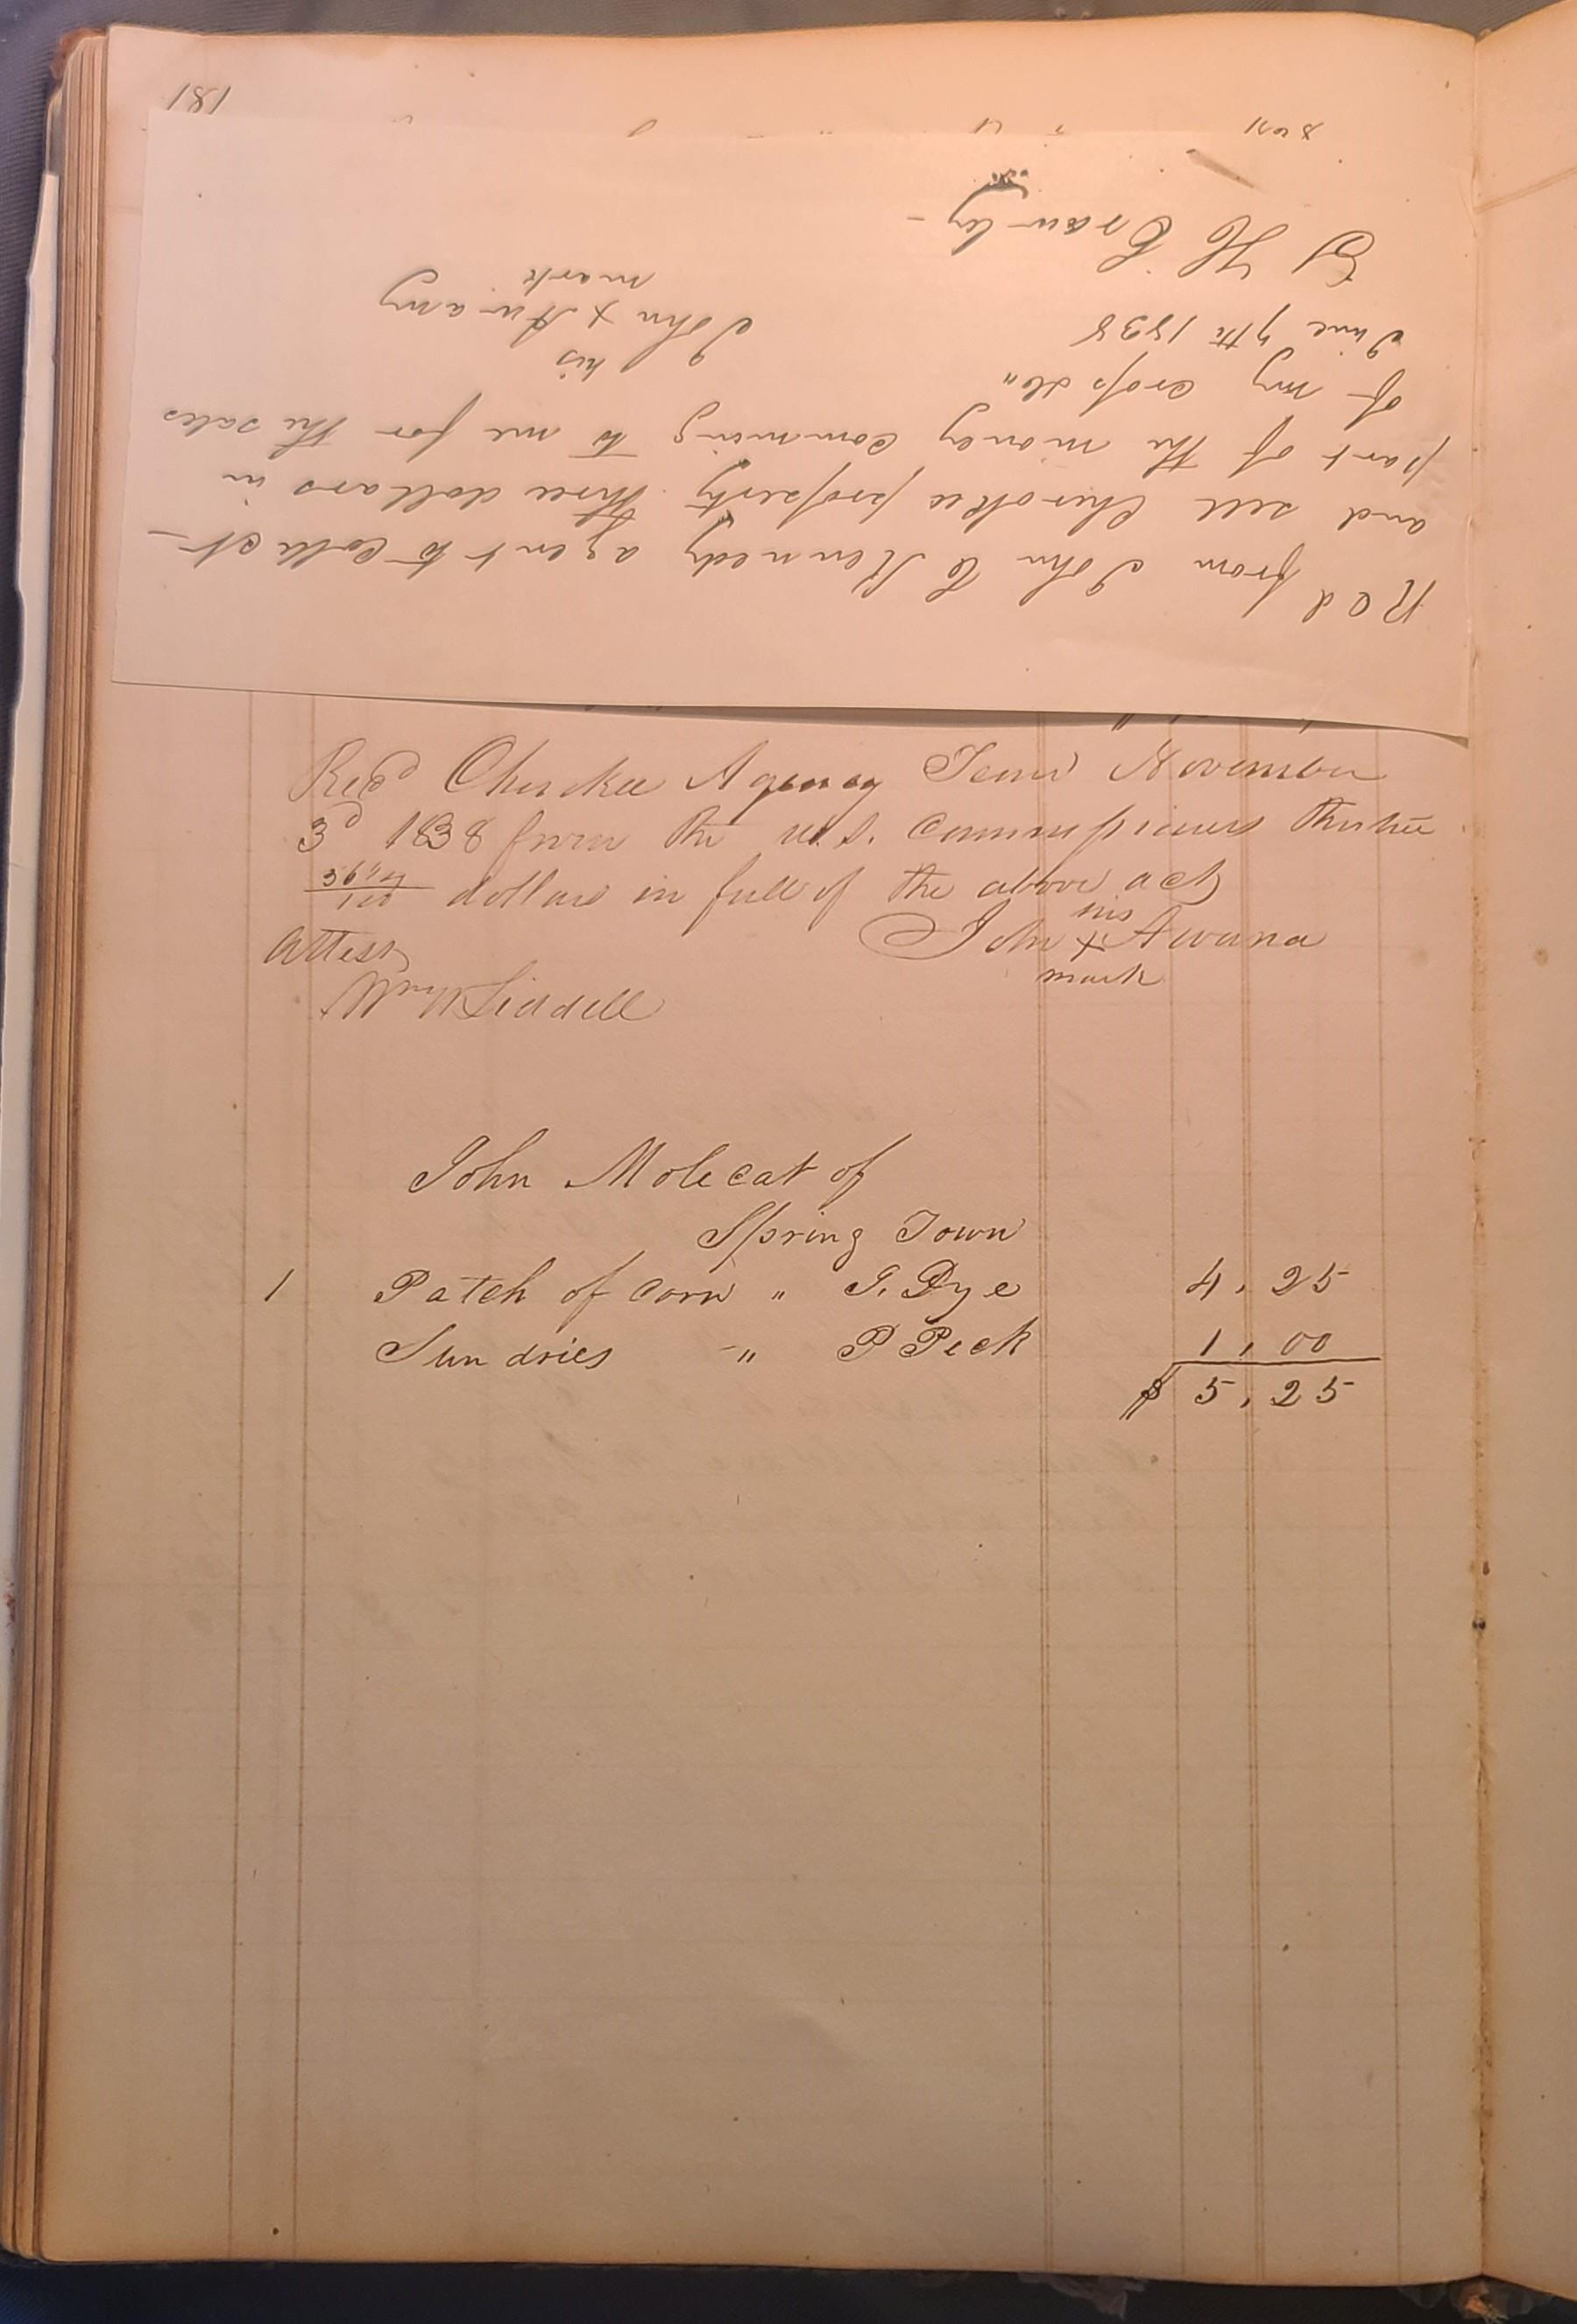 181
Recd from John C Kennedy agent to Collect
and sell Cherokee property three dollars in
part of the money comming to me for the sales
of my crop &c"
June 7th 1838
his
John x Awany
mark
E H Crawley
Recd Cherokee Agency Tenn November
3d 1838 from the U.S. Commissioners
dollars in full of the above act
his
John x Awana
mark
Attest
Wm Liddell
John Molecat of
Spring Town
1 Patch of Corn " T. Dye 4,25
Sundries " P Peck 1,00
$ 5,25